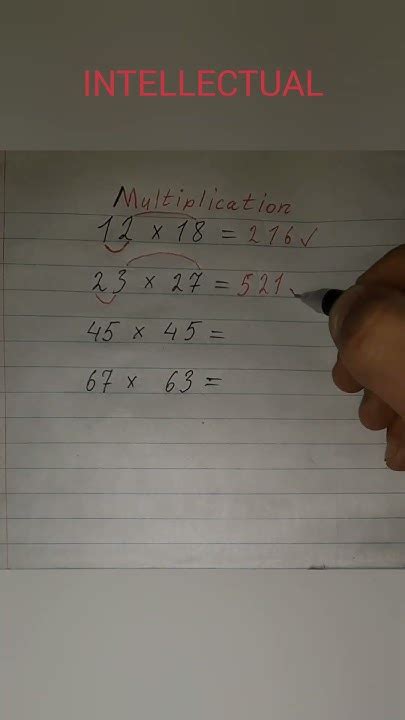 INTELLECTUAL
Multiplication
12 x 18 = 216✓
23 x 27 = 521
45 x 45 =
67 x 63 =